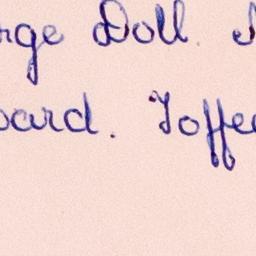 rge Doll.
oard. Toffee